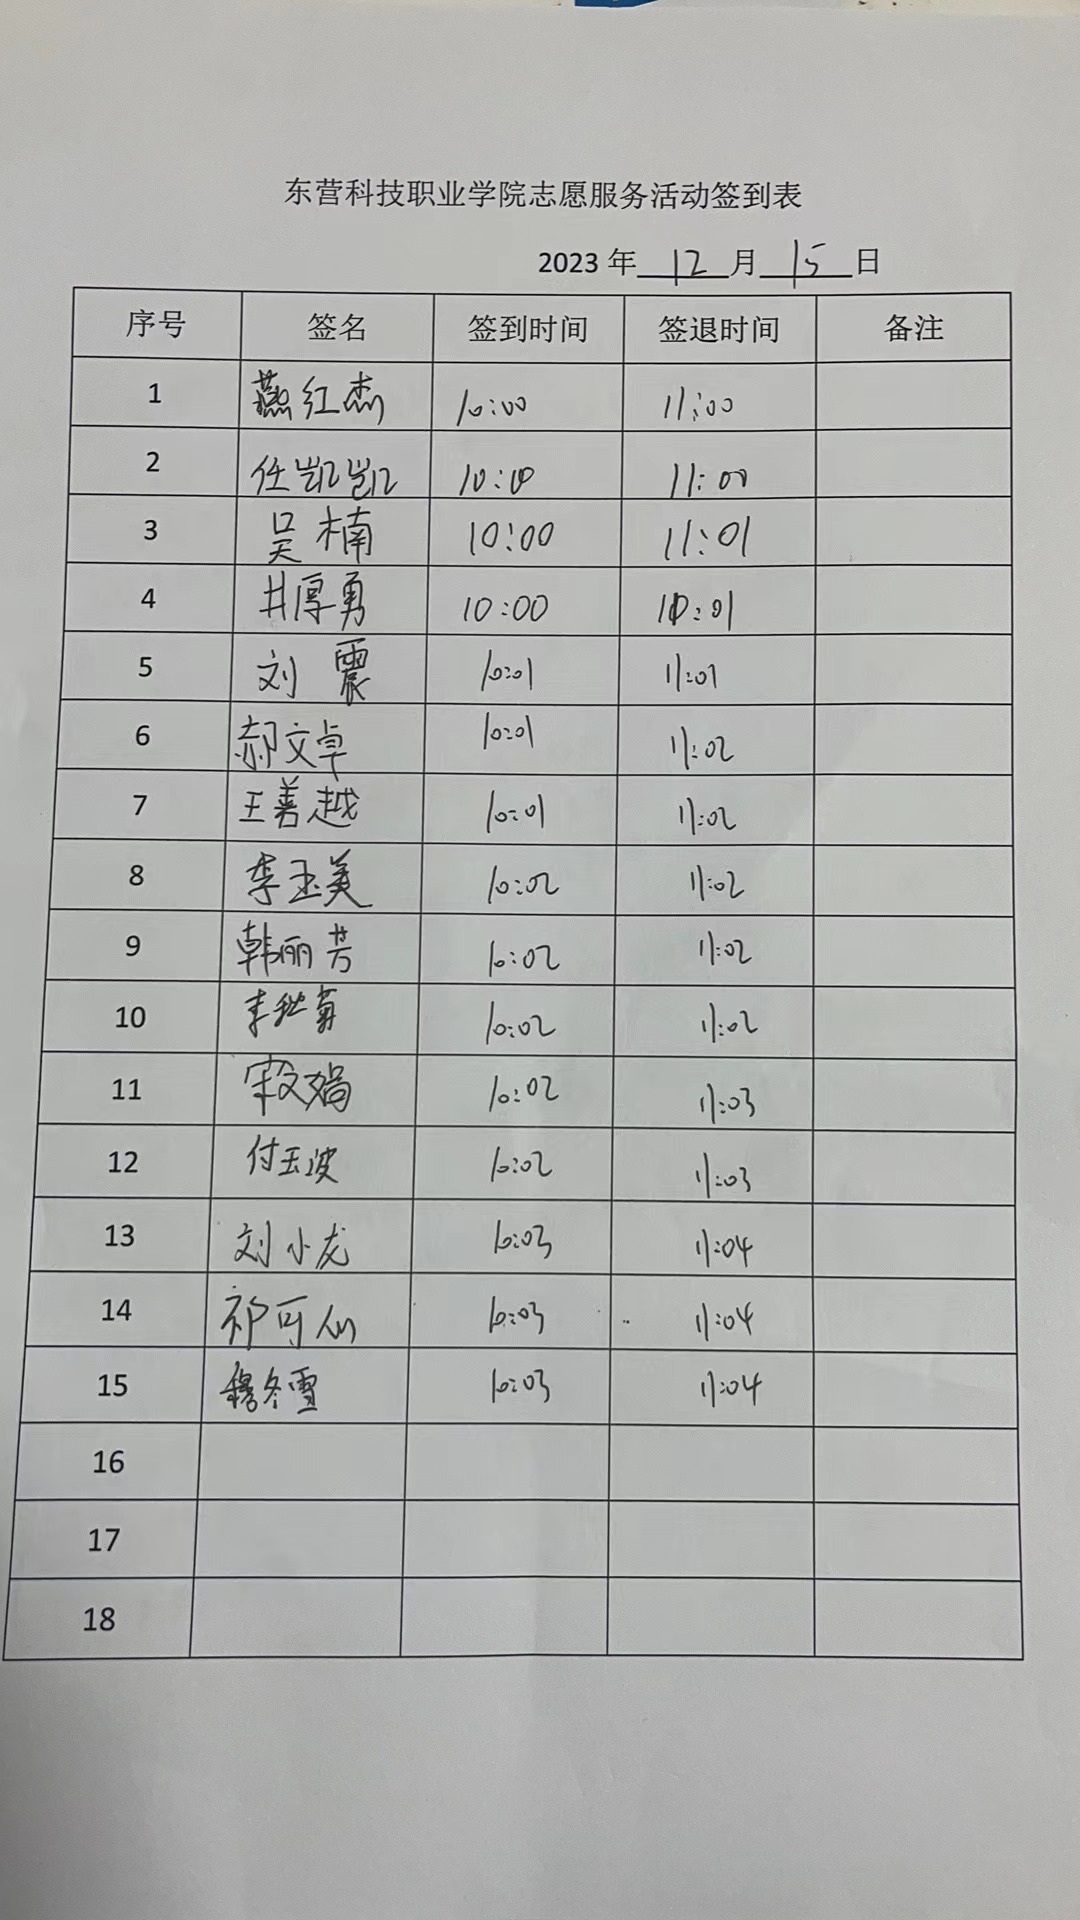 东营科技职业学院志愿服务活动签到表
2023 年 12 月 15 日
序号 签名 签到时间 签退时间 备注
1 燕红杰 10:00 11:00
2 任凯凯 10:00 11:00
3 吴楠 10:00 11:01
4 井厚勇 10:00 11:01
5 刘震 10:01 11:01
6 郝文卓 10:01 11:02
7 王善越 10:01 11:02
8 李玉美 10:02 11:02
9 韩丽芳 10:02 11:02
10 10:02 11:02
11 宋文娟 10:02 11:03
12 付玉波 10:02 11:03
13 刘小龙 10:03 11:04
14 祁可仙 10:03 11:04
15 穆冬雪 10:03 11:04
16
17
18